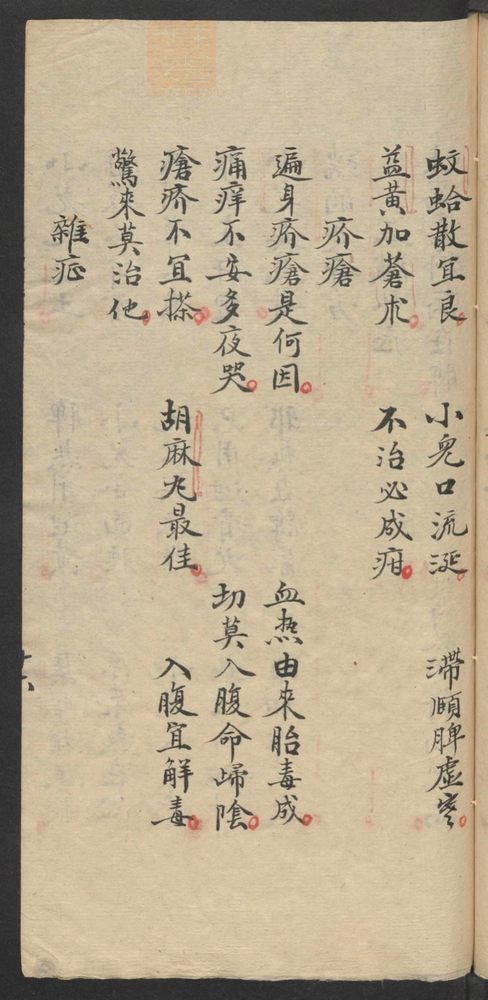 蚊蛤散宜良　小兒口流涎　滯頤脾虛寒
益黃加蒼朮　不治必成疳
疥瘡
遍身疥瘡是何因　血热由來胎毒成
痛痒不安多夜哭　切莫入腹命歸陰
瘡疥不宜搽　胡麻丸最佳　入腹宜解毒
驚來莫治他
雜症